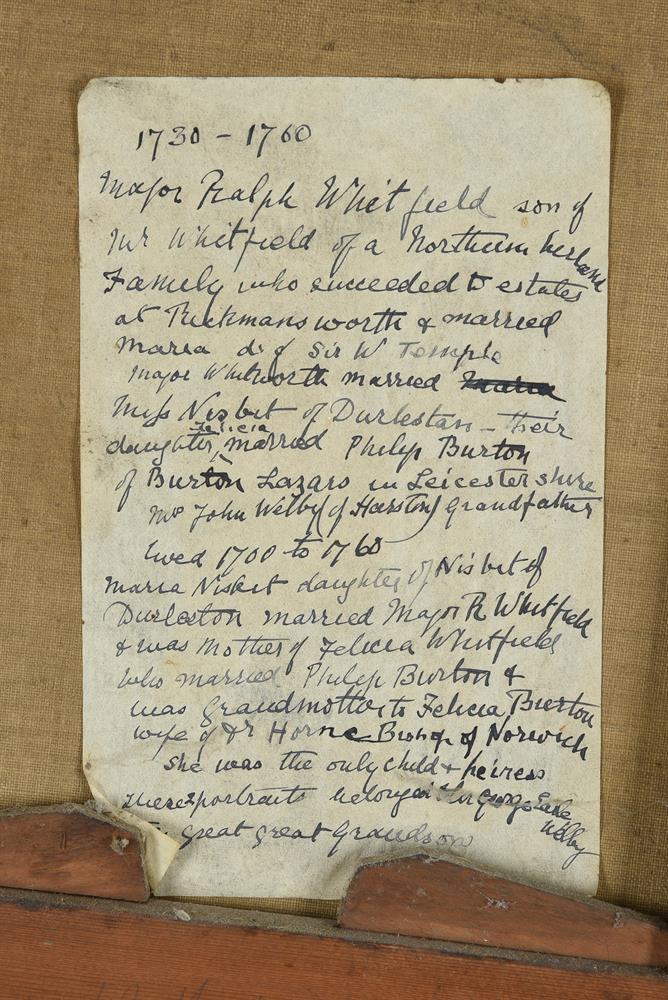 1730 - 1760
Major Ralph Whitfield son of
Mr Whitfield of a Northumberland
Family who succeeded to estates
at Rickmansworth & married
Maria dr of Sir W Temple
Major Whitworth married
Miss Nisbit of Durlestan - their
Felicia
daughter, married Philip Burton
of Burton Lazars in Leicestershire
Mr John Welby (of Harston) Grandfather
lived 1700 to 1760
Maria Nisbet daughter of Nisbit of
Durleston married Major R Whitfield
& was Mother of Felicia Whitfield
who married Philip Burton &
was Grandmother to Felicia Burton
wife of Dr Horne Bishop of Norwich
She was the only child & heiress
These 2 portraits belonged George Earle
Welby
great great Grandson